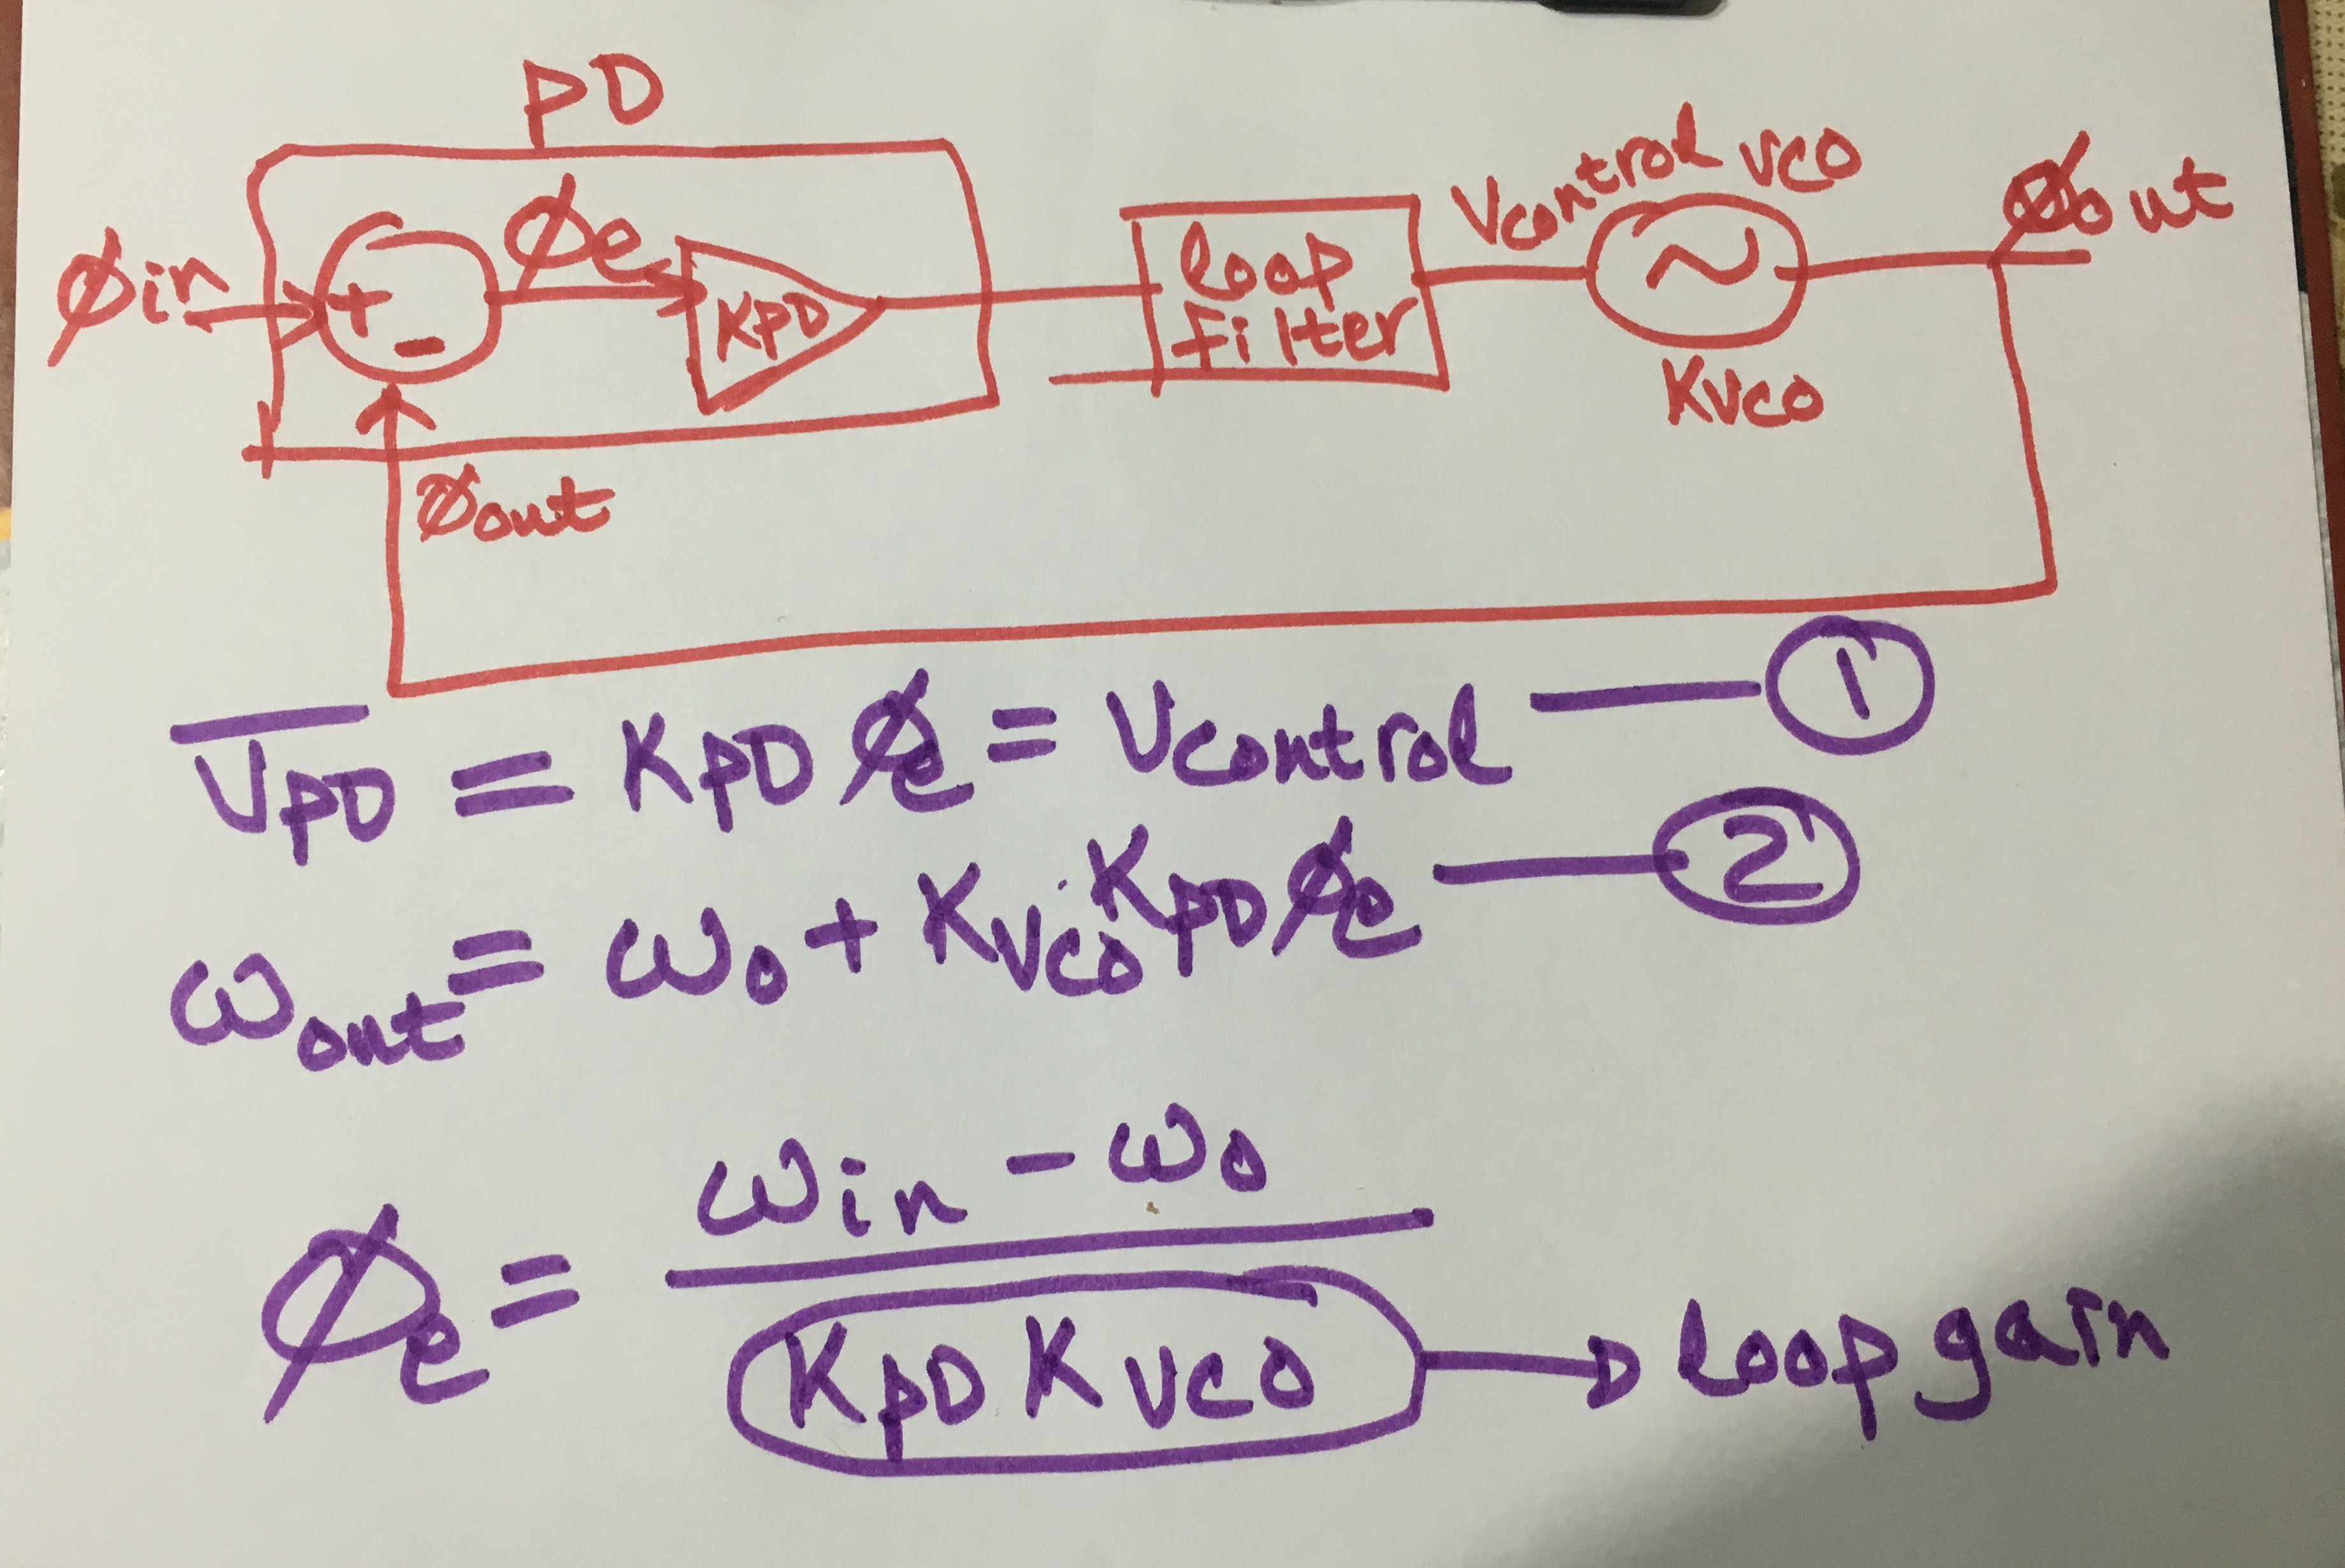 PD
ϕin
+
-
ϕe
KPD
loop
filter
Vcontrol
VCO
KVCO
ϕout
ϕout
V̅PD = KPD ϕe = Vcontrol — ①
ωout = ω0 + KVCO KPD ϕe — ②
ϕe = ωin - ω0
KPD KVCO → loop gain